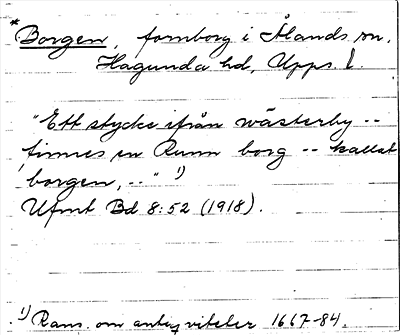 * Borgen, fornborg i Ålands sn,
Hagunda hd, Upps. l.
"Ett stycke ifrån wästerby --
finnes en Runn borg -- kallat
borgen, --" 1)
Ufmt Bd 8:52 (1918).
1) Rans. om antiqviteter 1667-84.